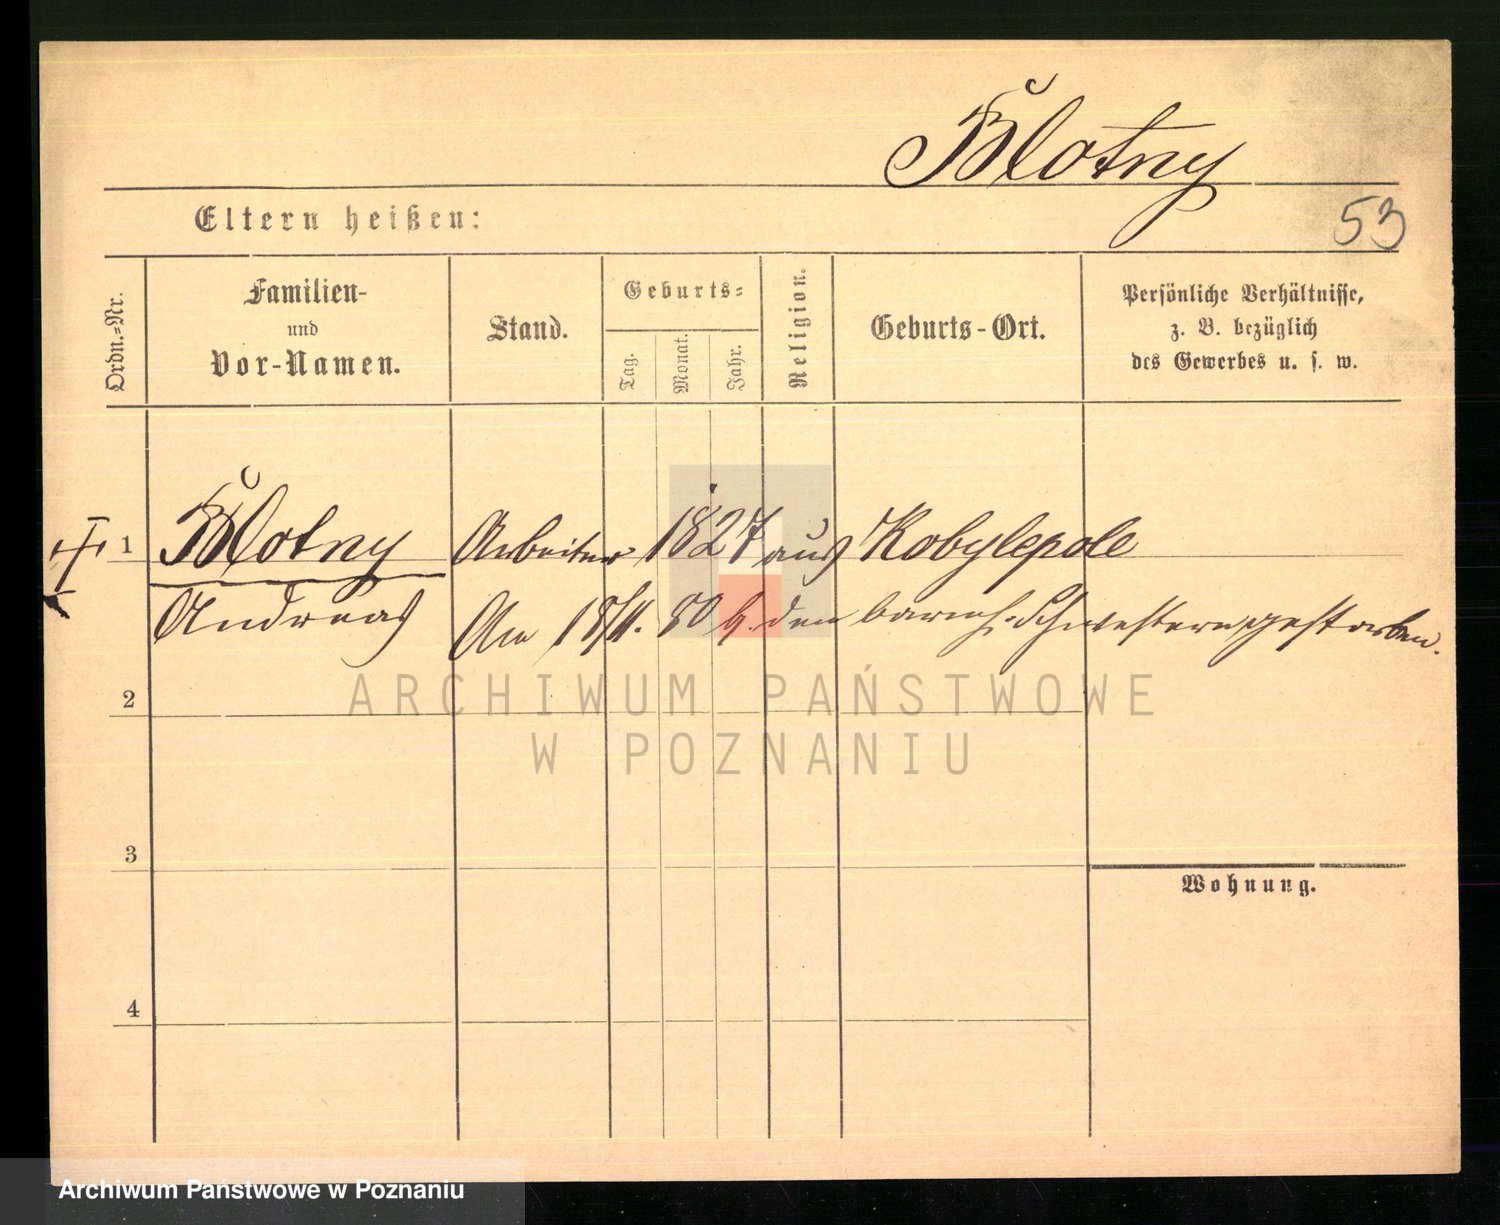 Blotny
Eltern heißen:
53
Ordn.-Nr.
Familien-
und
Vor-Namen.
Stand.
Geburts-
Tag.
Monat.
Jahr.
Religion.
Geburts-Ort.
Persönliche Verhältnisse,
z. B. bezüglich
des Gewerbes u. s. w.
1 Blotny Arbeiter 1827 aus Kobylepole
Andreas Am 18/11. 80 b. den barmh. Schwestern gestorben.
ARCHIWUM PAŃSTWOWE
W POZNANIU
2
3
Wohnung.
4
Archiwum Państwowe w Poznaniu